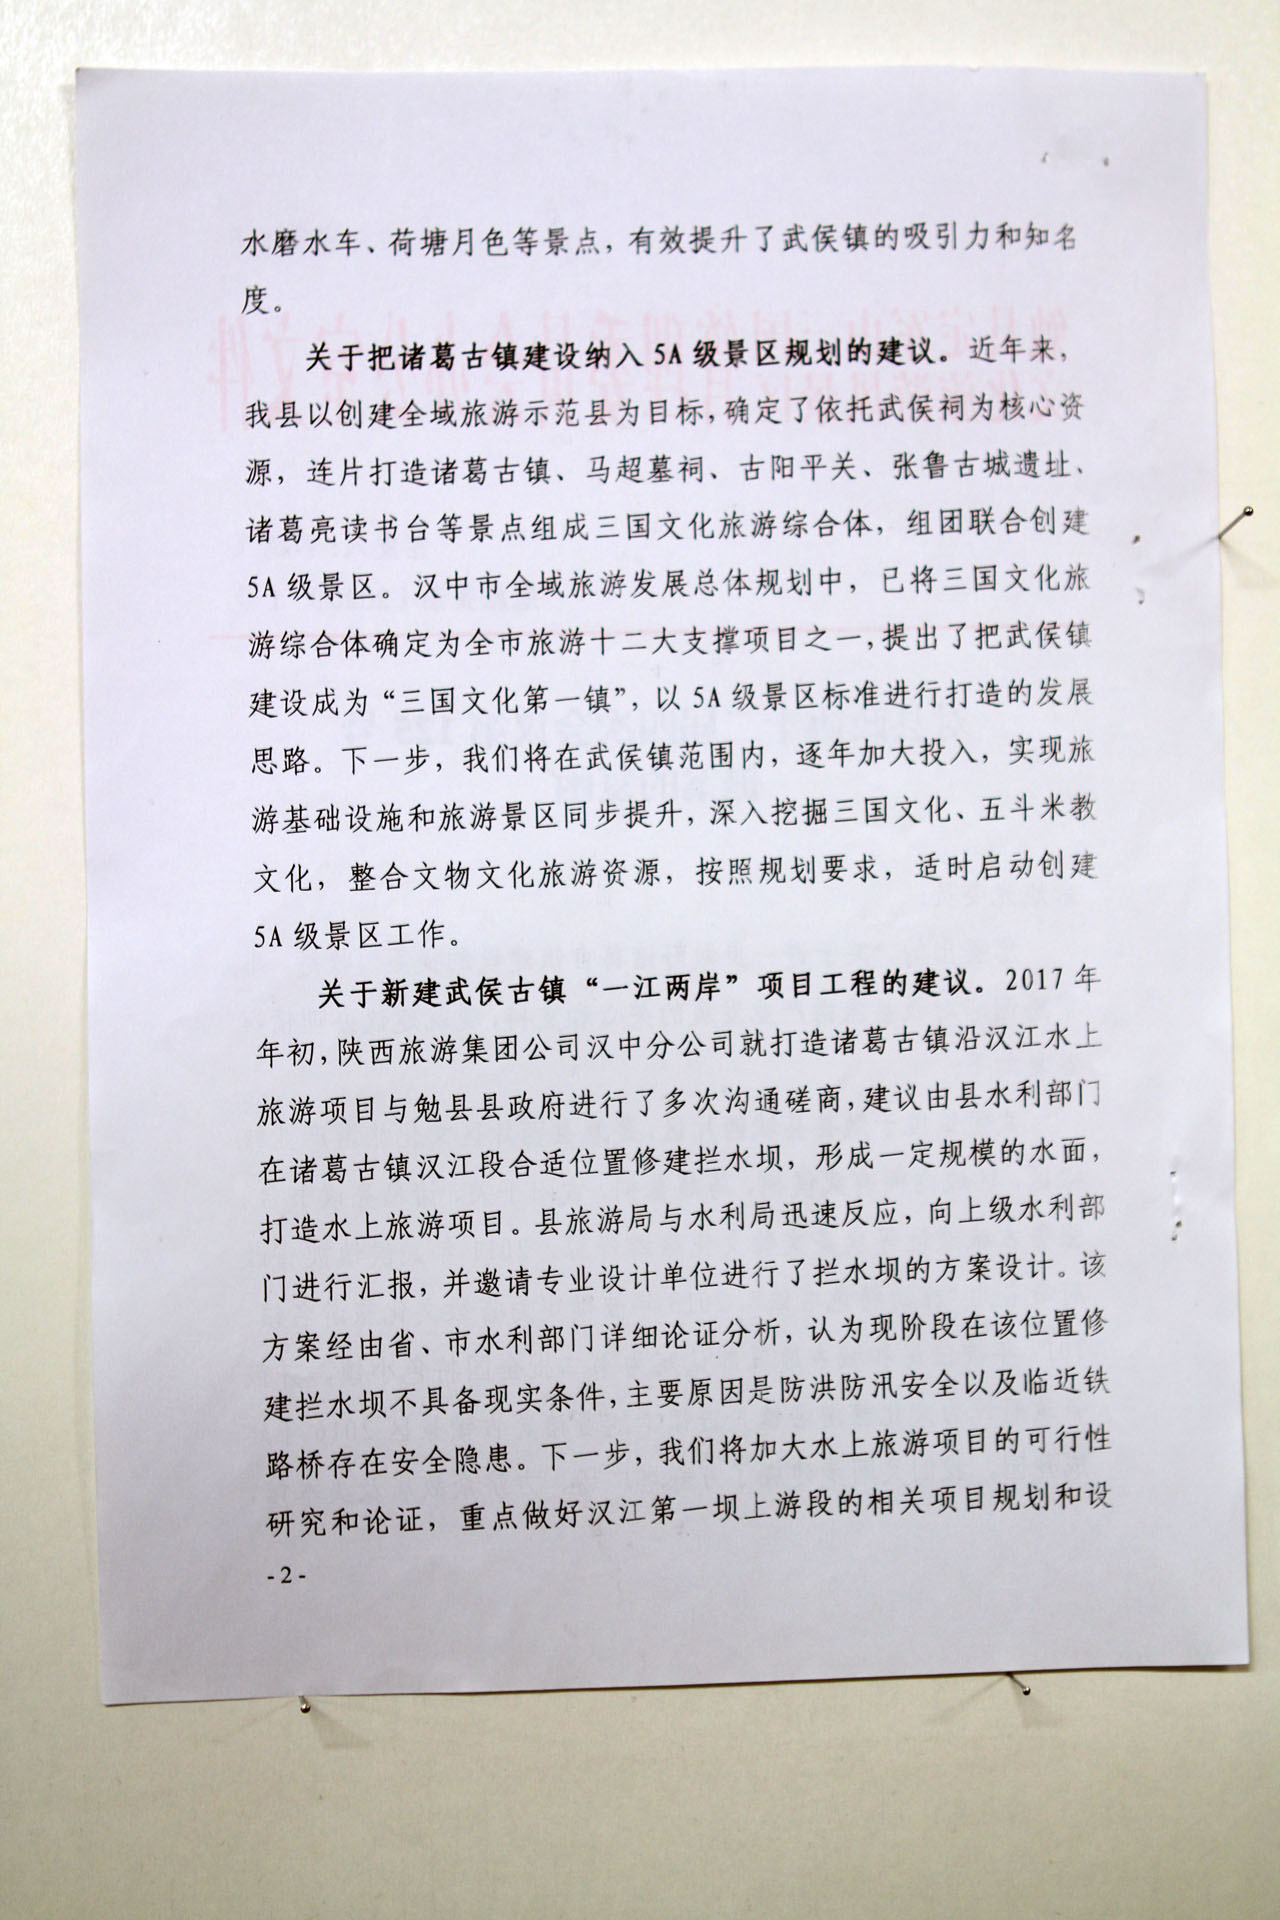 水磨水车、荷塘月色等景点，有效提升了武侯镇的吸引力和知名
度。
关于把诸葛古镇建设纳入 5A 级景区规划的建议。近年来，
我县以创建全域旅游示范县为目标，确定了依托武侯祠为核心资
源，连片打造诸葛古镇、马超墓祠、古阳平关、张鲁古城遗址、
诸葛亮读书台等景点组成三国文化旅游综合体，组团联合创建
5A 级景区。汉中市全域旅游发展总体规划中，已将三国文化旅
游综合体确定为全市旅游十二大支撑项目之一，提出了把武侯镇
建设成为“三国文化第一镇”，以 5A 级景区标准进行打造的发展
思路。下一步，我们将在武侯镇范围内，逐年加大投入，实现旅
游基础设施和旅游景区同步提升，深入挖掘三国文化、五斗米教
文化，整合文物文化旅游资源，按照规划要求，适时启动创建
5A 级景区工作。
关于新建武侯古镇“一江两岸”项目工程的建议。2017 年
年初，陕西旅游集团公司汉中分公司就打造诸葛古镇沿汉江水上
旅游项目与勉县县政府进行了多次沟通磋商，建议由县水利部门
在诸葛古镇汉江段合适位置修建拦水坝，形成一定规模的水面，
打造水上旅游项目。县旅游局与水利局迅速反应，向上级水利部
门进行汇报，并邀请专业设计单位进行了拦水坝的方案设计。该
方案经由省、市水利部门详细论证分析，认为现阶段在该位置修
建拦水坝不具备现实条件，主要原因是防洪防汛安全以及临近铁
路桥存在安全隐患。下一步，我们将加大水上旅游项目的可行性
研究和论证，重点做好汉江第一坝上游段的相关项目规划和设
- 2 -